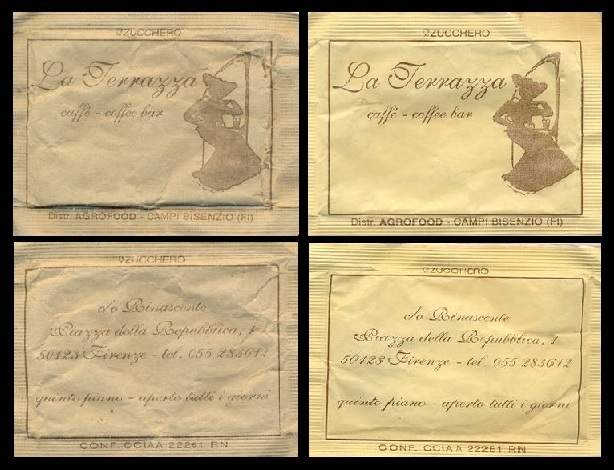 ZUCCHERO
La Terrazza
caffè - coffee bar
Distr. AGROFOOD - CAMPI BISENZIO (FI)
ZUCCHERO
La Terrazza
caffè - coffee bar
Distr. AGROFOOD - CAMPI BISENZIO (FI)
ZUCCHERO
c/o Rinascente
Piazza della Repubblica, 1
50123 Firenze - tel. 055 283612
quinto piano - aperto tutti i giorni
CONF. CCIAA 22261 RN
ZUCCHERO
c/o Rinascente
Piazza della Repubblica, 1
50123 Firenze - tel. 055 283612
quinto piano - aperto tutti i giorni
CONF. CCIAA 22261 RN